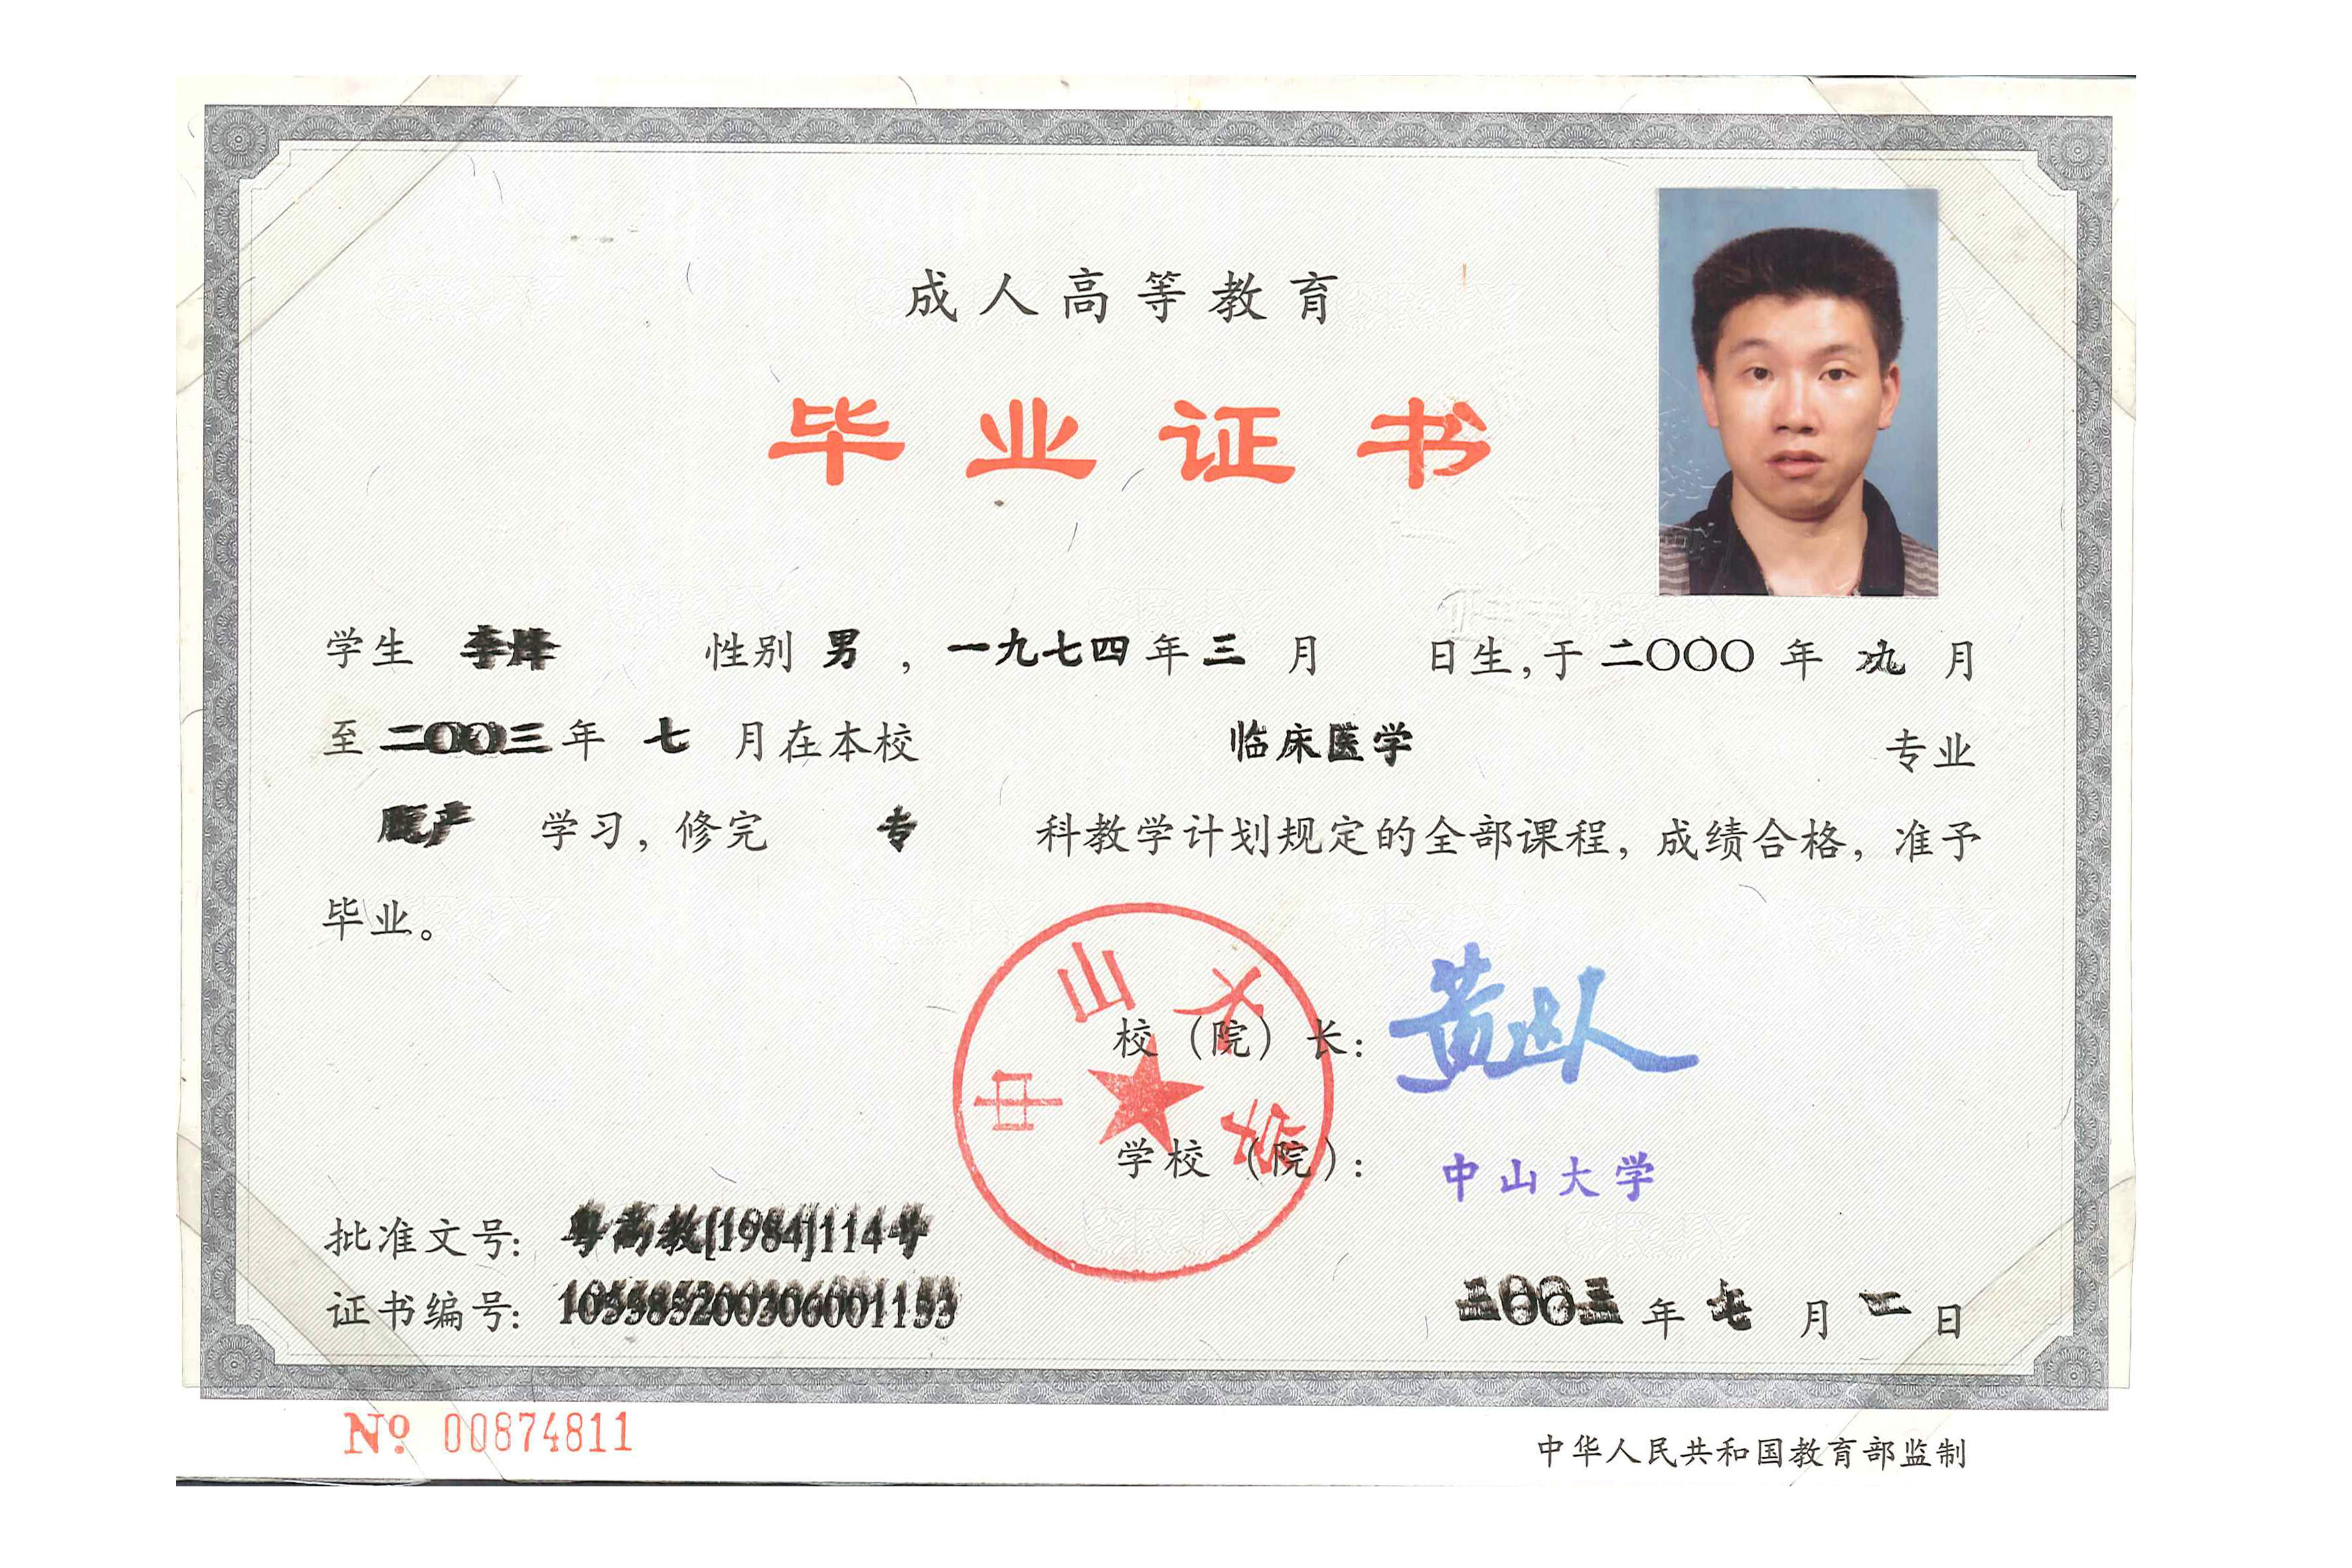 成人高等教育
毕业证书
学生 李烽 性别 男 ，一九七四年三月 日生，于二〇〇〇年九月
至二〇〇三年七月在本校 临床医学 专业
脱产 学习，修完 专 科教学计划规定的全部课程，成绩合格，准予
毕业。
中山大学
校（院）长： 黄达人
学校（院）： 中山大学
批准文号：粤高教[1984]114号
证书编号：
二〇〇三年七月一日
№ 00874811
中华人民共和国教育部监制